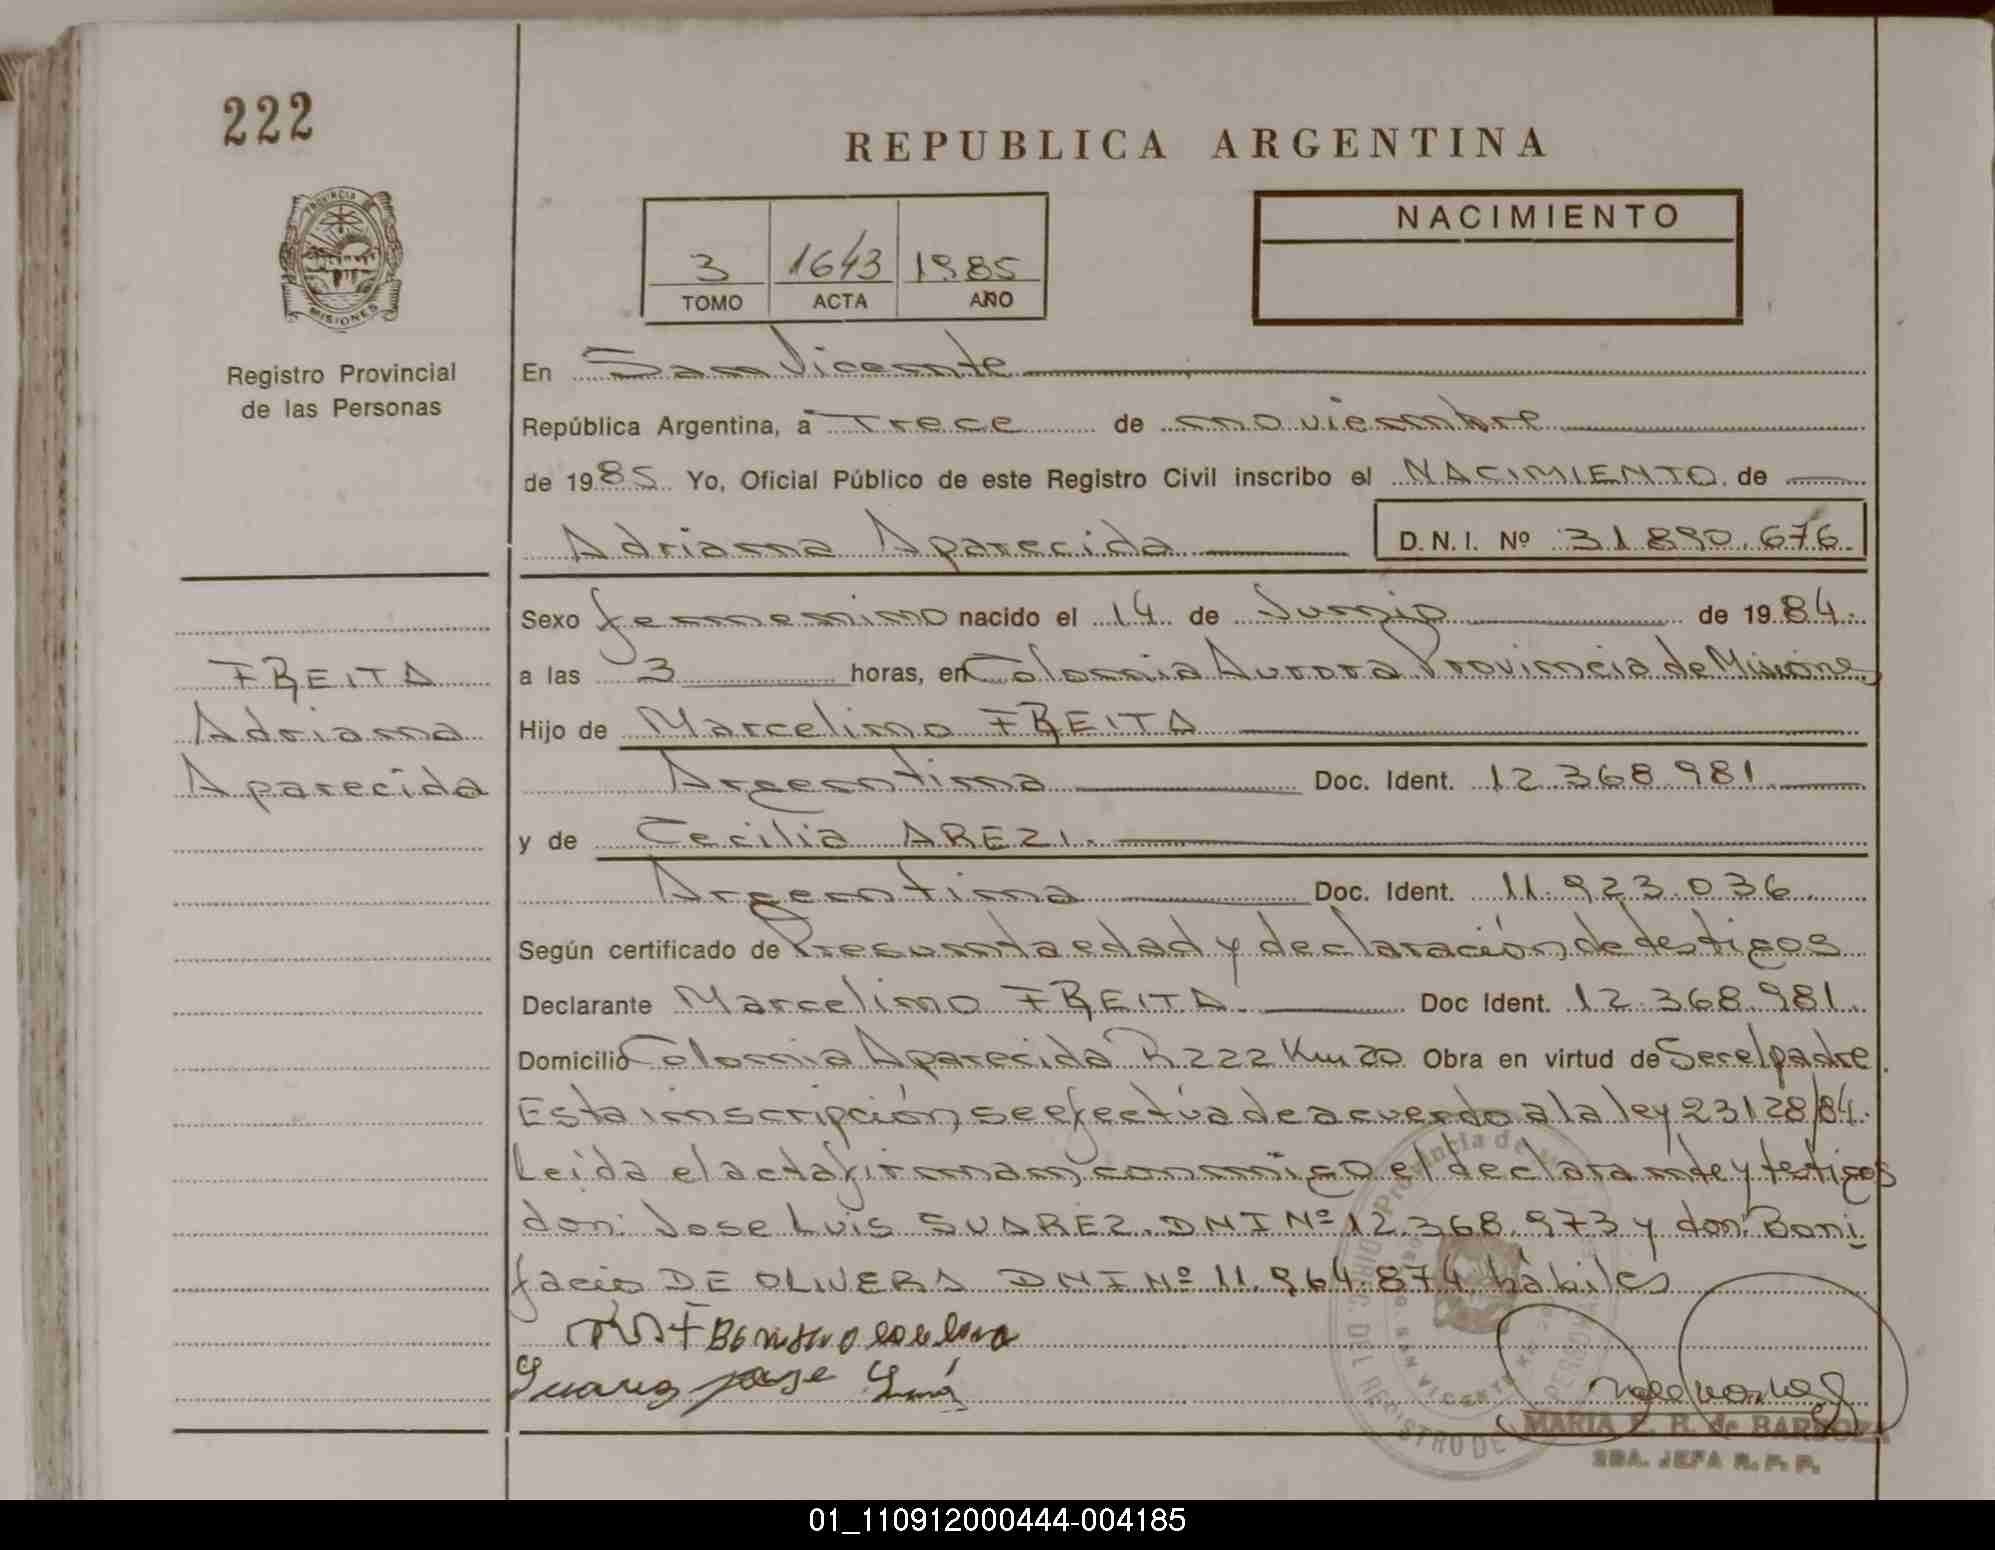 222
REPUBLICA ARGENTINA
PROVINCIA DE MISIONES
3 1643 1985
TOMO ACTA AÑO
NACIMIENTO
Registro Provincial
de las Personas
En San Vicente
República Argentina, a Trece de noviembre
de 1985 Yo, Oficial Público de este Registro Civil inscribo el NACIMIENTO de
Adriana Aparecida D.N.I. Nº 31.890.676
Sexo femenino nacido el 14 de Junio de 1984.
FREITA
Adriana
Aparecida
a las 3 horas, en Colonia Aurora Provincia de Misiones
Hijo de Marcelino FREITA
Argentina Doc. Ident. 12.368.981
y de Cecilia AREZI.
Argentina Doc. Ident. 11.923.036
Según certificado de Presunta edad y declaración de testigos
Declarante Marcelino FREITA. Doc Ident. 12.368.981.
Domicilio Colonia Aparecida R 222 Km 20 Obra en virtud de Ser el padre.
Esta inscripción se efectúa de acuerdo a la ley 23128/84.
Leida el acta firman conmigo el declarante y testigos
don: Jose Luis SUAREZ. DNI Nº 12.368.973 y don: Boni
facio DE OLIVERA DNI Nº 11.964.874 hàbiles
Suarez jose Luis
MARIA E. B. de BARBOZA
SRA. JEFA R. P. P.
01_110912000444-004185